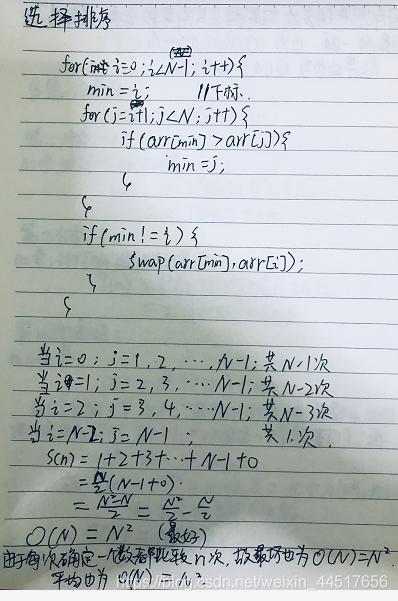 选择排序
for(int i=0;i<N-1;i++){
min=i; //下标.
for(j=i+1;j<N;j++){
if(arr[min]>arr[j]){
min=j;
}
}
if(min!=i){
swap(arr[min],arr[i]);
}
}
当i=0;j=1,2,…,N-1;共N-1次
当i=1;j=2,3,…N-1;共N-2次
当i=2;j=3,4,…N-1;共N-3次
当i=N-2;j=N-1;共1次.
S(n)=1+2+3+…+N-1+0
=N/2(N-1+0)
=(N²-N)/2=N²/2-N/2
O(N)=N² (最好)
由于每次确定一个数都比较n次,故最坏也为O(N)=N².
平均也为O(N)=N²
https://blog.csdn.net/weixin_44517656